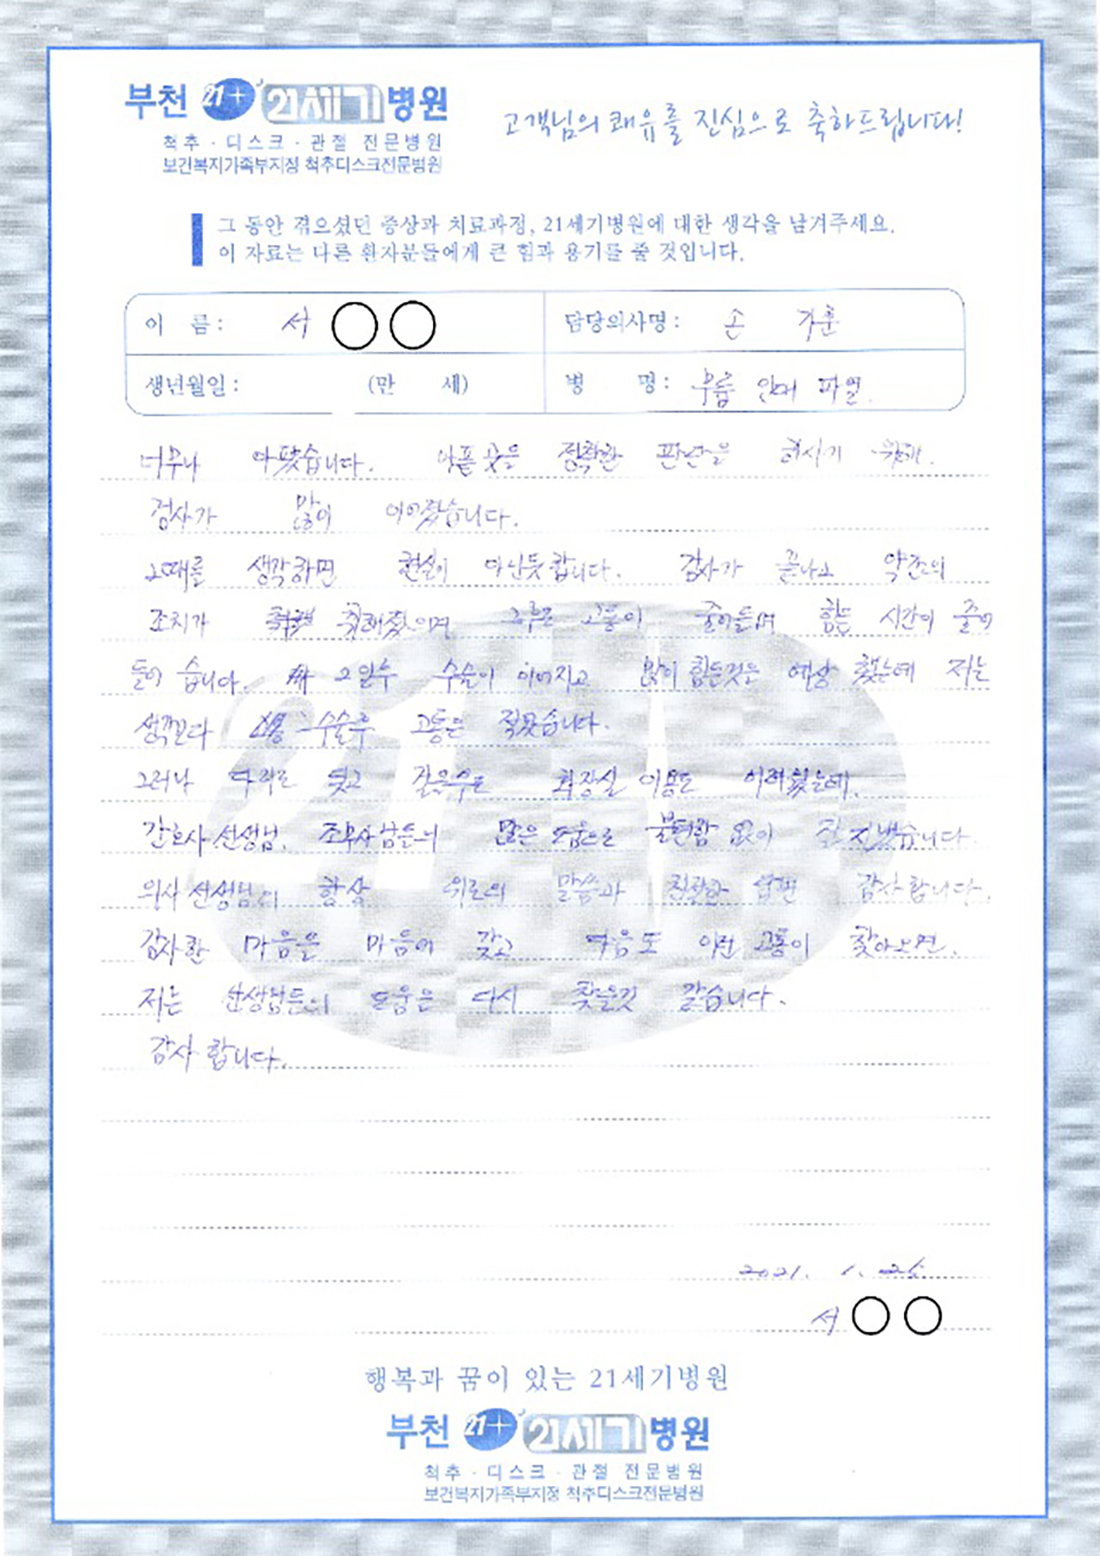 부천 21+ 21세기병원
척추 · 디스크 · 관절 전문병원
보건복지가족부지정 척추디스크전문병원
고객님의 쾌유를 진심으로 축하드립니다!
그 동안 겪으셨던 증상과 치료과정, 21세기병원에 대한 생각을 남겨주세요.
이 자료는 다른 환자분들에게 큰 힘과 용기를 줄 것입니다.
이 름 : 서 ○○
담당의사명 : 손
생년월일 : (만 세)
병 명 : 무릎 인대 파열.
너무나 아팠습니다. 아픈곳을 정확한 판단을 하시기 위해.
검사가 많이 이어졌습니다.
그때를 생각하면 현실이 아닌듯합니다. 검사가 끝나고 약간의
조치가 취해졌으며 그후로 고통이 줄어들며 힘든 시간이 줄어
들어 습니다. 그 일후 수술이 이어지고 많이 힘든것은 예상 했는데 저는
생각보다 수술후 고통은 적었습니다.
그러나 다리로 딛고 걸을수도 화장실 이용도 어려웠는데.
간호사 선생님, 조무사님들의 많은 도움으로 불편함 없이 잘 지냈습니다.
의사 선생님의 항상 위로의 말씀과 친절한 답변 감사합니다.
감사한 마음은 마음에 갖고 다음도 이런 고통이 찾아오면.
저는 선생님들의 도움은 다시 찾을것 같습니다.
감사 합니다.
2021. 1. 26
서 ○○
행복과 꿈이 있는 21세기병원
부천 21+ 21세기병원
척추 · 디스크 · 관절 전문병원
보건복지가족부지정 척추디스크전문병원